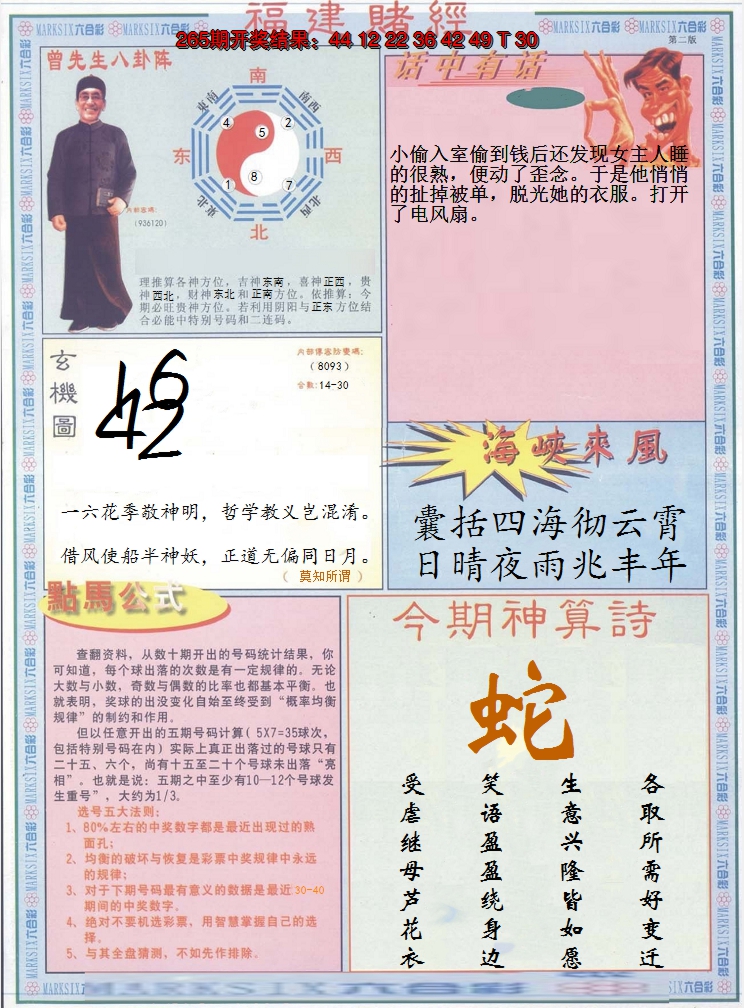 福建賭經
265期开奖结果：44 12 22 36 42 49 T 30
第二版
MARKSIX六合彩
曾先生八卦阵
南
东南
南西
4
5
2
东
西
1
8
7
東北
北西
北
内部密碼：
（936120）
理推算各神方位，吉神东南，喜神正西，贵
神西北，财神东北和正南方位。依推算：今
期必旺贵神方位。若利用阴阳与正东方位结
合必能中特别号码和二连码。
话中有话
小偷入室偷到钱后还发现女主人睡
的很熟，便动了歪念。于是他悄悄
的扯掉被单，脱光她的衣服。打开
了电风扇。
玄機圖
内部傳密防變碼：
（8093）
合數：14-30
一六花季敬神明，哲学教义岂混淆。
借风使船半神妖，正道无偏同日月。
（ 莫知所谓 ）
海峽來風
囊括四海彻云霄
日晴夜雨兆丰年
點馬公式
查翻资料，从数十期开出的号码统计结果，你
可知道，每个球出落的次数是有一定规律的。无论
大数与小数，奇数与偶数的比率也都基本平衡。也
就表明，奖球的出没变化自始至终受到“概率均衡
规律”的制约和作用。
但以任意开出的五期号码计算（5X7=35球次，
包括特别号码在内）实际上真正出落过的号球只有
二十五、六个，尚有十五至二十个号球未出落“亮
相”。也就是说：五期之中至少有10—12个号球发
生重号”，大约为1/3。
选号五大法则：
1、80%左右的中奖数字都是最近出现过的熟
面孔；
2、均衡的破坏与恢复是彩票中奖规律中永远
的规律；
3、对于下期号码最有意义的数据是最近30-40
期间的中奖数字。
4、绝对不要机选彩票，用智慧掌握自己的选
择。
5、与其全盘猜测，不如先作排除。
今期神算詩
蛇
各取所需好变迁
生意兴隆皆如愿
笑语盈盈绕身边
受虐继母芦花衣